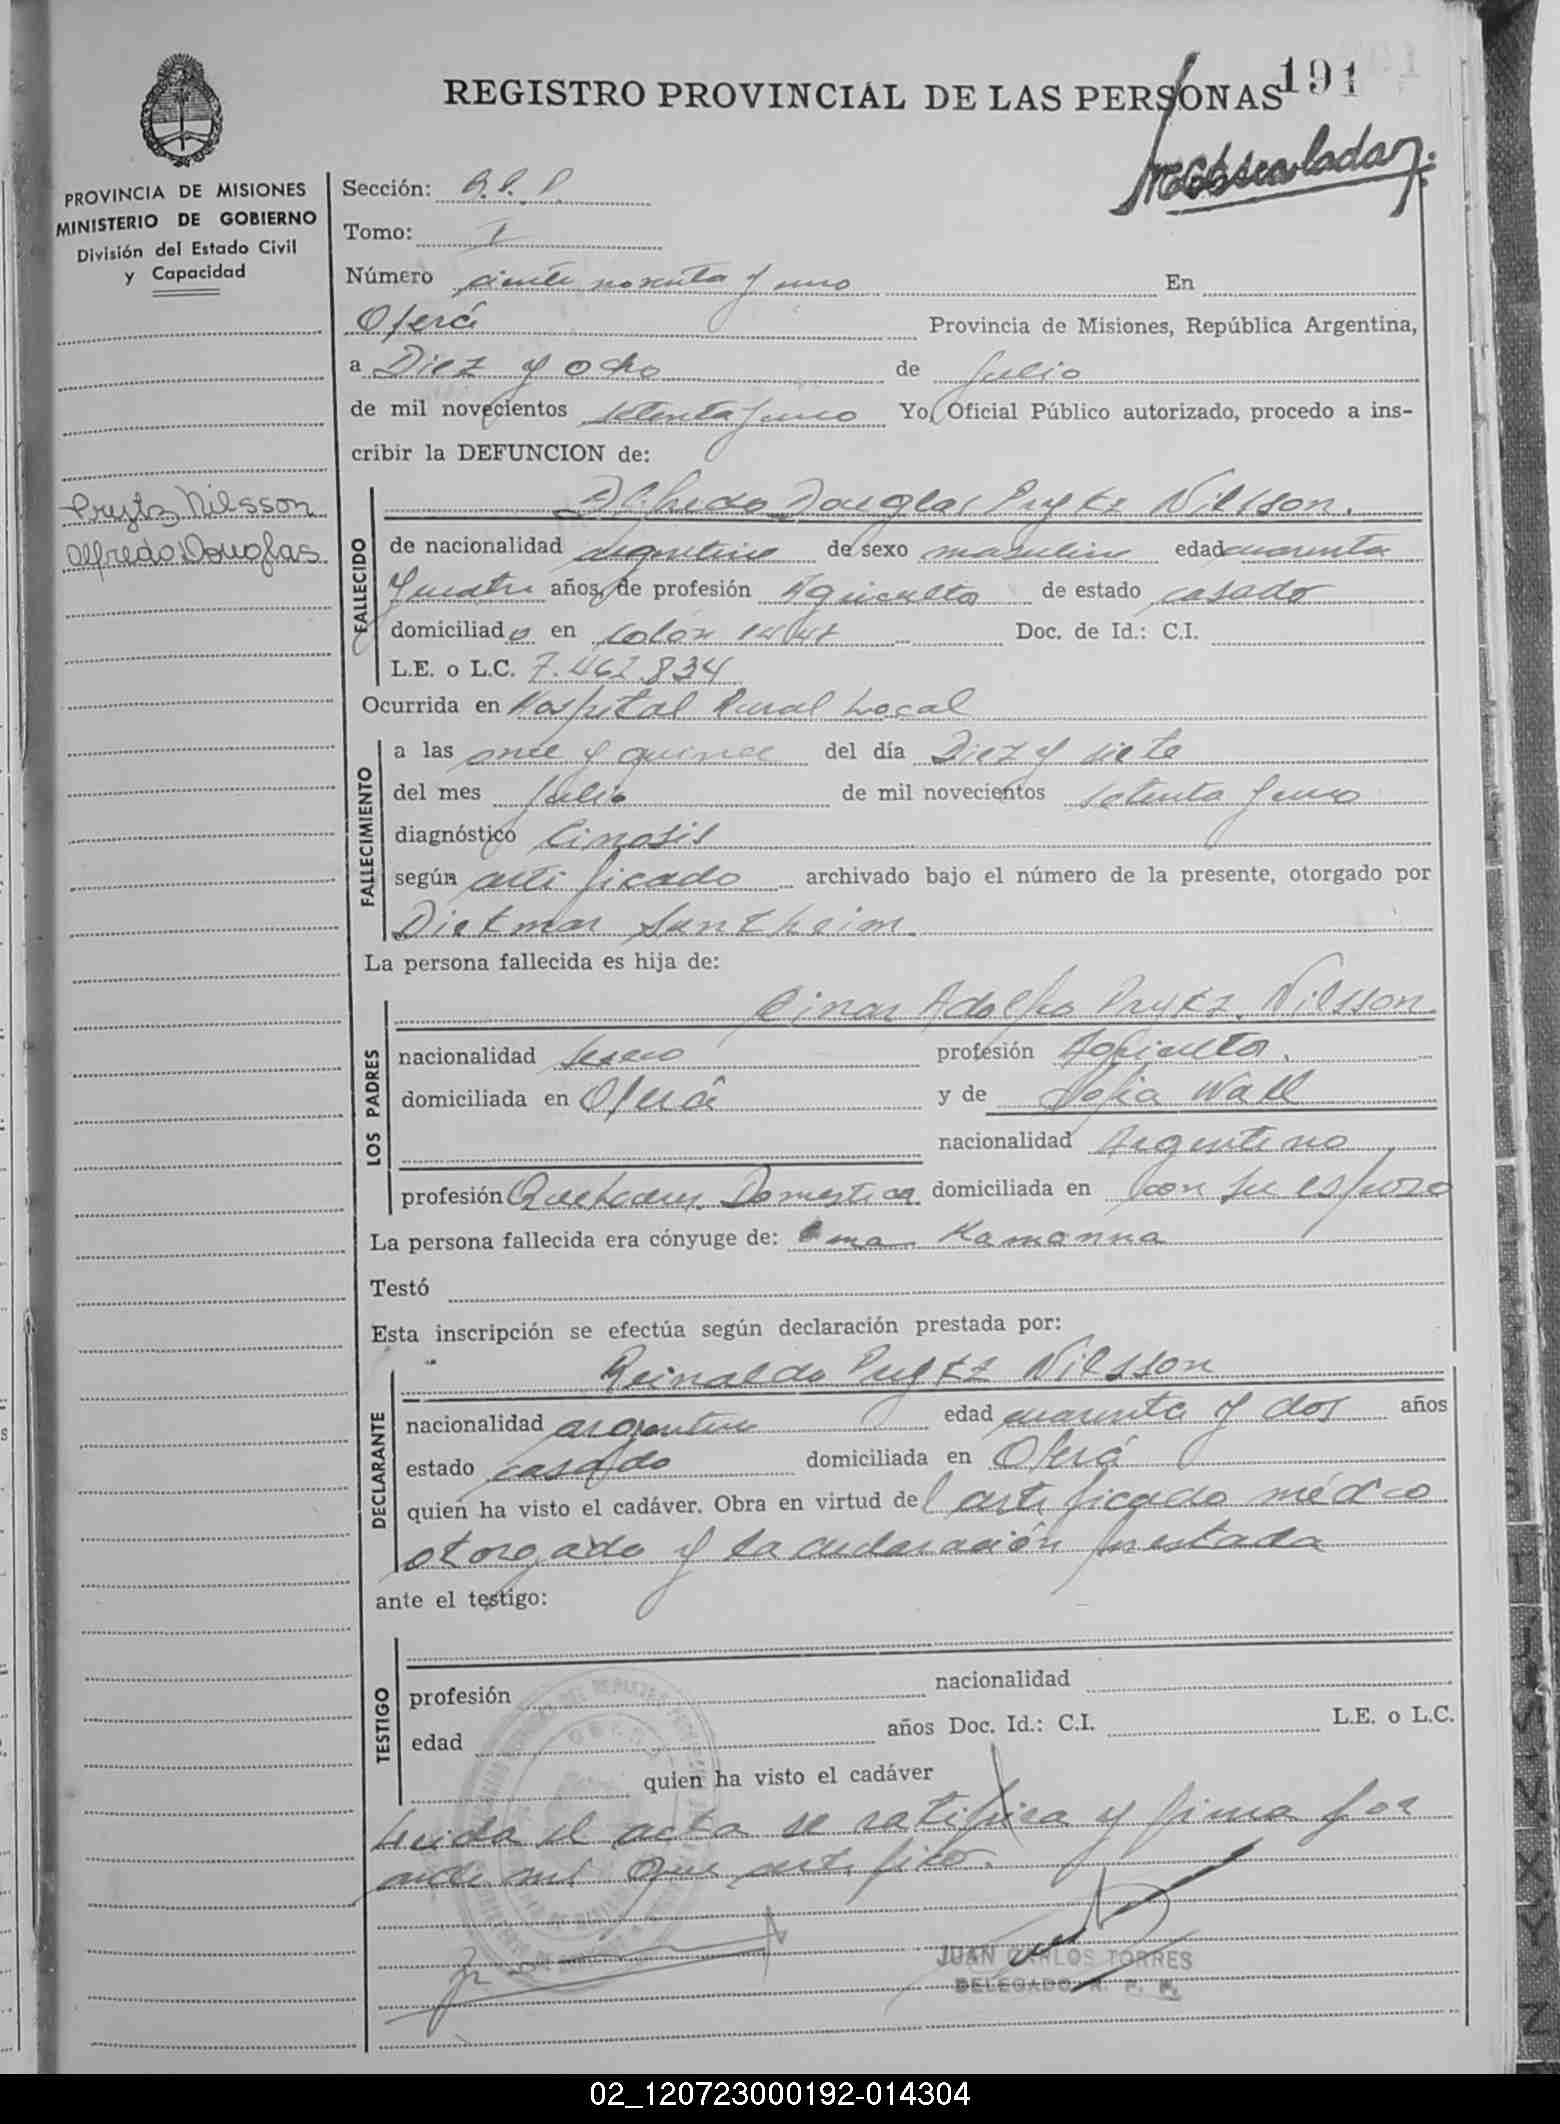 191
REGISTRO PROVINCIAL DE LAS PERSONAS
PROVINCIA DE MISIONES
MINISTERIO DE GOBIERNO
División del Estado Civil
y Capacidad
Prytz Nilsson
Alfredo Douglas
Sección: R.P.P.
Tomo: I
Número ciento noventa y uno En
Oberá Provincia de Misiones, República Argentina,
a Diez y ocho de Julio
de mil novecientos setenta y uno Yo, Oficial Público autorizado, procedo a ins-
cribir la DEFUNCION de:
FALLECIDO
Alfredo Douglas Prytz Nilsson.
de nacionalidad argentino de sexo masculino edad cuarenta
y cuatro años, de profesión Agricultor de estado casado
domiciliado en Colón 1447 Doc. de Id.: C.I.
L.E. o L.C. 7.462.834
Ocurrida en Hospital Rural Local
FALLECIMIENTO
a las once y quince del día Diez y siete
del mes Julio de mil novecientos setenta y uno
diagnóstico
según certificado archivado bajo el número de la presente, otorgado por
Dietmar Suntheim.
La persona fallecida es hija de:
LOS PADRES
Einar Adolfo Prytz Nilsson.
nacionalidad sueco profesión Agricultor.
domiciliada en Oberá y de Sofia Wall
nacionalidad Argentino
profesión Quehaceres Domestica domiciliada en con su esposo
La persona fallecida era cónyuge de: Kamonna
Testó
Esta inscripción se efectúa según declaración prestada por:
DECLARANTE
Reinaldo Prytz Nilsson
nacionalidad argentino edad cuarenta y dos años
estado casado domiciliada en Oberá
quien ha visto el cadáver. Obra en virtud del certificado médico
otorgado y la declaración prestada
ante el testigo:
TESTIGO
profesión nacionalidad
edad años Doc. Id.: C.I. L.E. o L.C.
quien ha visto el cadáver
Leida el acta se ratifica y firma por
ante mi Que certifico.
JUAN CARLOS TORRES
DELEGADO R. P. P.
02_120723000192-014304